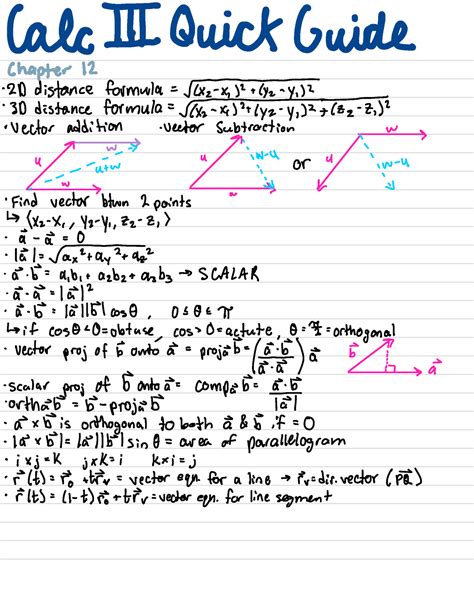 Calc III Quick Guide
Chapter 12
·2D distance formula = √(x₂-x₁)²+(y₂-y₁)²
·3D distance formula = √(x₂-x₁)²+(y₂-y₁)²+(z₂-z₁)²
·vector addition ·vector subtraction
w u u+w w
u w-u w or w u w-u
·Find vector btwn 2 points
↳ ⟨x₂-x₁, y₂-y₁, z₂-z₁⟩
·a⃗ - a⃗ = 0
·|a⃗| = √aₓ²+aᵧ²+a_z²
·a⃗·b⃗ = a₁b₁+a₂b₂+a₃b₃ → SCALAR
·a⃗·a⃗ = |a⃗|²
·a⃗·b⃗ = |a⃗||b⃗|cosθ, 0≤θ≤π
↳if cosθ<0=obtuse, cos>0=actute, θ=π/2=orthogonal
·vector proj of b⃗ onto a⃗ = proja⃗b⃗ = (a⃗·b⃗/a⃗·a⃗)a⃗ b⃗ a⃗
·scalar proj of b⃗ onto a⃗ = compa⃗b⃗ = a⃗·b⃗/|a⃗|
·ortha⃗b⃗ = b⃗-proja⃗b⃗
·a⃗×b⃗ is orthogonal to both a⃗ & b⃗ if = 0
·|a⃗×b⃗| = |a⃗||b⃗|sinθ = area of parallelogram
·i×j=k j×k=i k×i=j
·r⃗(t) = r⃗₀ + tr⃗ᵥ = vector eqn. for a line → r⃗ᵥ=dir.vector (PQ⃗)
·r⃗(t) = (1-t)r⃗₀ + tr⃗ᵥ = vector eqn. for line segment